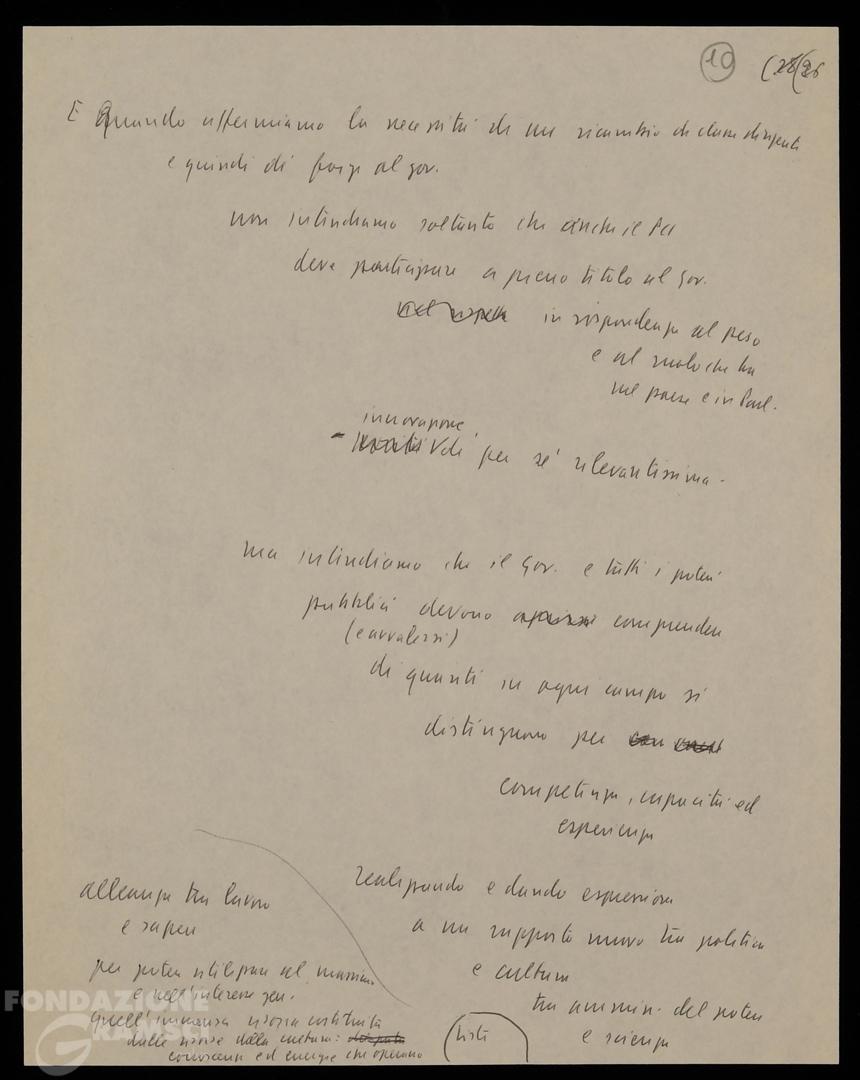 10 (28(26
E Quando affermiamo la necessità di un ricambio di classi dirigenti
e quindi di forze al gov.
non intendiamo soltanto che anche il Pci
deve partecipare a pieno titolo al Gov.
in rispondenza al peso
e al ruolo che ha
nel paese e in Parl.
innovazione
- per sé rilevantissima.
ma intendiamo che il Gov. e tutti i poteri
pubblici devono comprendere
(e avvalersi)
di quanti in ogni campo si
distinguono per
competenza, capacità ed
esperienza
realizzando e dando espressione
a un rapporto nuovo tra politica
e cultura
tra ammin. del potere
e scienza
alleanza tra lavoro
e sapere
per poter utilizzare al massimo
e nell'interesse gen.
quell'immensa risorsa costituita
dalle risorse della cultura:
conoscenze ed energie che operano
FONDAZIONE
GRAMSCI